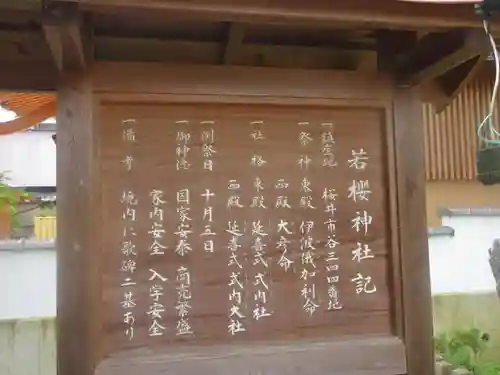 若櫻神社記
一鎮座地 桜井市谷三四四番地
一祭神 東殿 伊波俄加利命
西殿 大彦命
一社格 東殿 延喜式式内社
西殿 延喜式式内大社
一例祭日 十月三日
一御神徳 国家安泰 商売繁盛
家内安全 入学安全
一備考 境内に歌碑二基あり